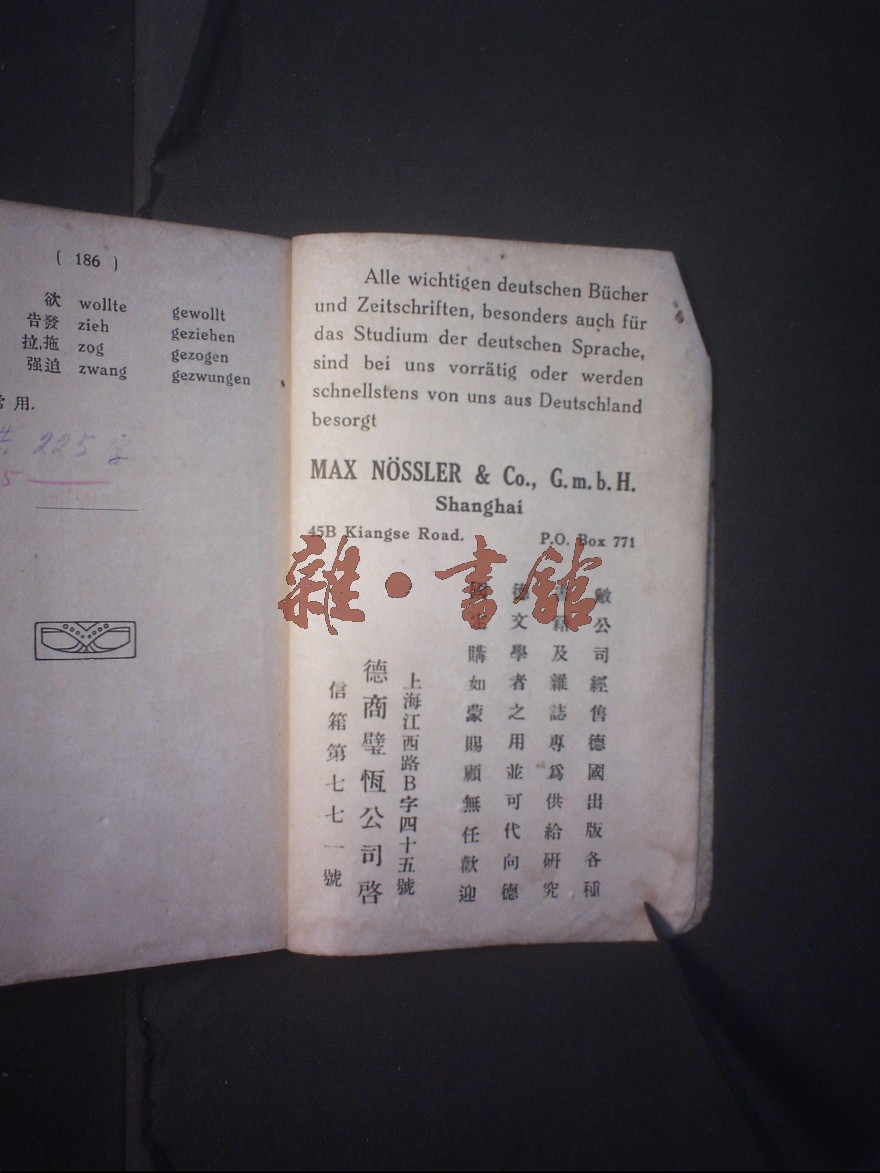 ( 186 )
欲 wollte gewollt
告發 zieh geziehen
拉,拖 zog gezogen
强迫 zwang gezwungen
用.
225
5
Alle wichtigen deutschen Bücher
und Zeitschriften, besonders auch für
das Studium der deutschen Sprache,
sind bei uns vorrätig oder werden
schnellstens von uns aus Deutschland
besorgt
MAX NÖSSLER & Co., G. m. b. H.
Shanghai
45B Kiangse Road. P.O. Box 771
雜·書館
敝公司經售德國出版各種
書籍及雜誌專爲供給研究
德文學者之用並可代向德
購如蒙賜顧無任歡迎
上海江西路B字四十五號
德商璧恆公司啓
信箱第七七一號